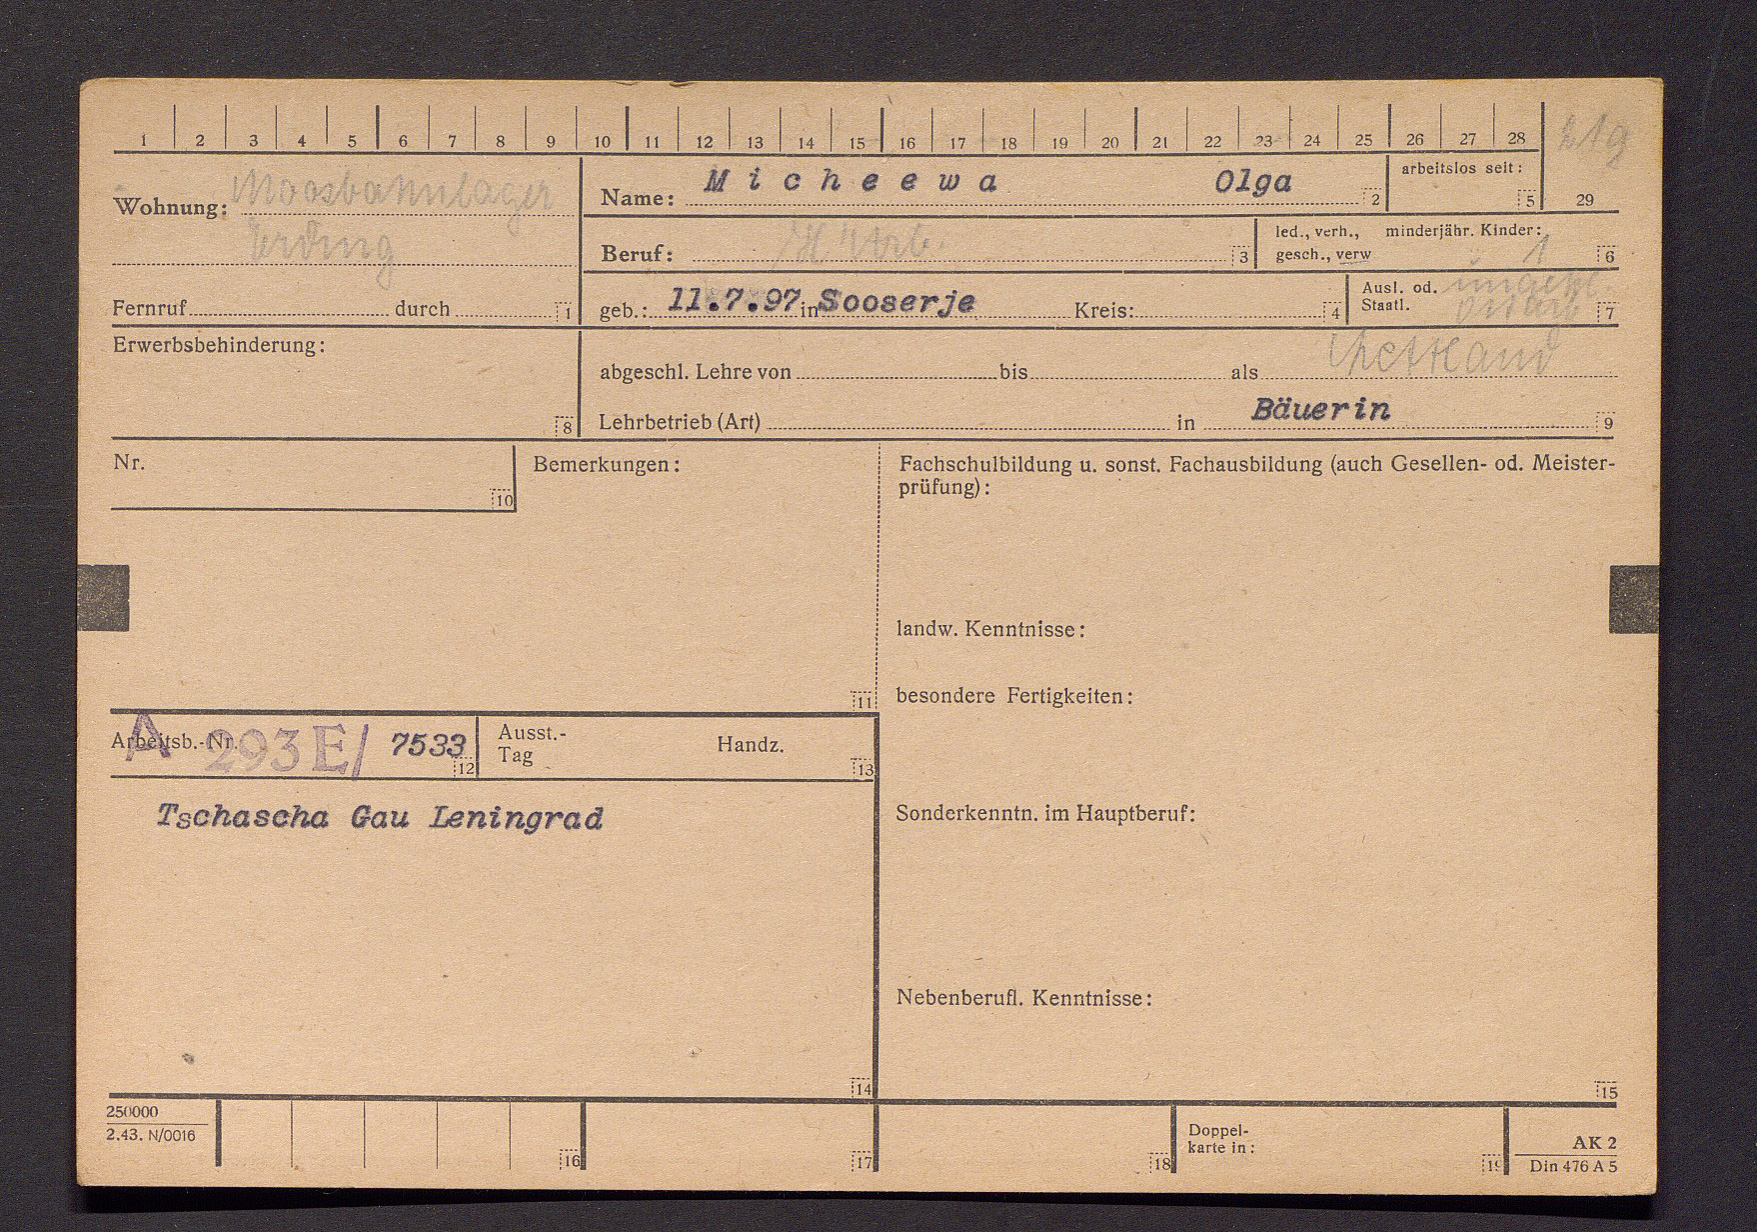 1 2 3 4 5 6 7 8 9 10 11 12 13 14 15 16 17 18 19 20 21 22 23 24 25 26 27 28 219
Wohnung: Moosbahnlager
Erding
Name: Micheewa Olga 2
arbeitslos seit: 5
29
Beruf: 3
led., verh., minderjähr. Kinder: 1
gesch., verw 6
Fernruf durch 1
geb.: 11.7.97 in Sooserje Kreis: 4
Ausl. od.
Staatl. 7
Lettland
Erwerbsbehinderung:
8
abgeschl. Lehre von bis als
Lehrbetrieb (Art) in Bäuerin 9
Nr.
10
Bemerkungen:
11
Fachschulbildung u. sonst. Fachausbildung (auch Gesellen- od. Meister-
prüfung):
landw. Kenntnisse:
besondere Fertigkeiten:
Arbeitsb.-Nr. A 293 E/ 7533 12
Ausst.-
Tag Handz. 13
Tschascha Gau Leningrad
14
Sonderkenntn. im Hauptberuf:
Nebenberufl. Kenntnisse:
15
250000
2.43. N/0016
16
17
18
Doppel-
karte in:
19
AK 2
Din 476 A 5